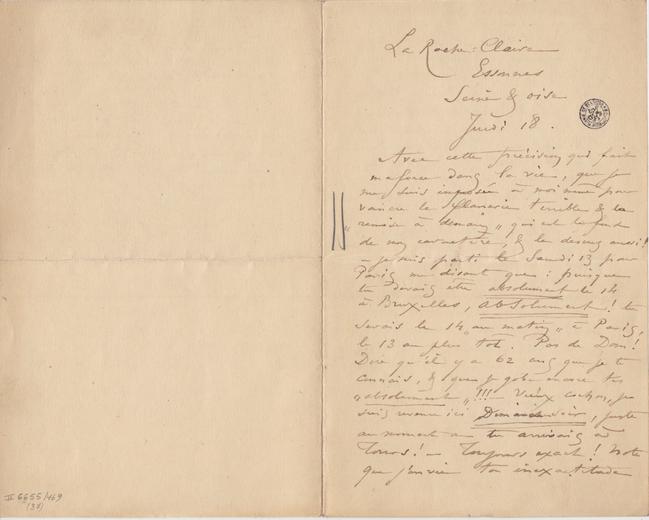 La Roche-Claire
Essonnes
Seine & oise
Jeudi 18.
Avec cette précision qui fait
ma force dans la vie, que je
me suis imposée à moi même pour
vaincre la flanerie terrible & la
"remise à demain" qui est le fond
de mon caractère, & le dessus aussi!
– je suis parti le Samedi 13 pour
Paris me disant que: puisque
tu devais être absolument le 14
à Bruxelles, absolument! tu
serais le 14 "au matin" à Paris,
le 13 au plus tôt. Pas de Dom!
Dire qu'il y a 62 ans que je te
connais, & que je gobe encore tes
"absolument"!!! – Vieux cochon, je
suis revenu ici Dimanche soir, juste
au moment où tu arrivais à
Tours! – Toujours exact! Note
que j'envie ton inexactitude
II 6655/469
(37)